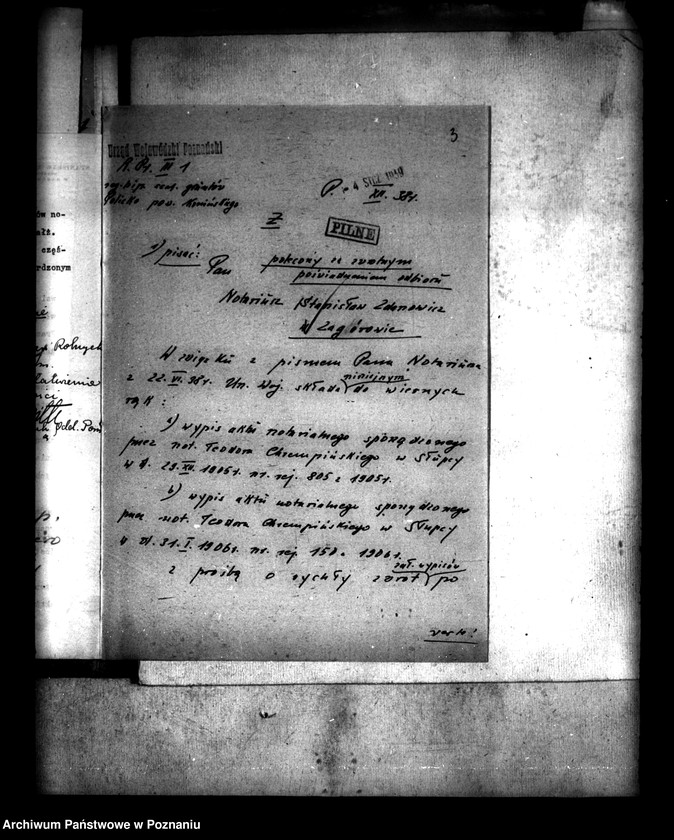 3
Urząd Wojewódzki Poznański
R. Pr. III 1
P. 4 STCZ 1939
XII. 38 r.
pow. Konińskiego
Z
PILNE
a) pisać:
polecony za zwrotnym
Pan
poświadczeniem odbioru
Notariusz Stanisław Zdanowicz
w Zagórowie
W związku z pismem Pana Notariusza
niniejszym
z 22. VI. 38 r. Urz. Woj. składa do wiernych
rąk:
a) wypis aktu notarialnego sporządzonego
przez not. Teodora Chrempińskiego w Słupcy
w d. 29. XII. 1905 r. nr. rej. 805 z 1905 r.
b) wypis aktu notarialnego sporządzonego
przez not. Teodora Chrempińskiego w Słupcy
w d. 31. I. 1906 r. nr. rej. 150 z 1906 r.
zał. wypisów
z prośbą o rychły zwrot po
verte!
ów no-
częś-
rdzonym
Rolnych
Archiwum Państwowe w Poznaniu